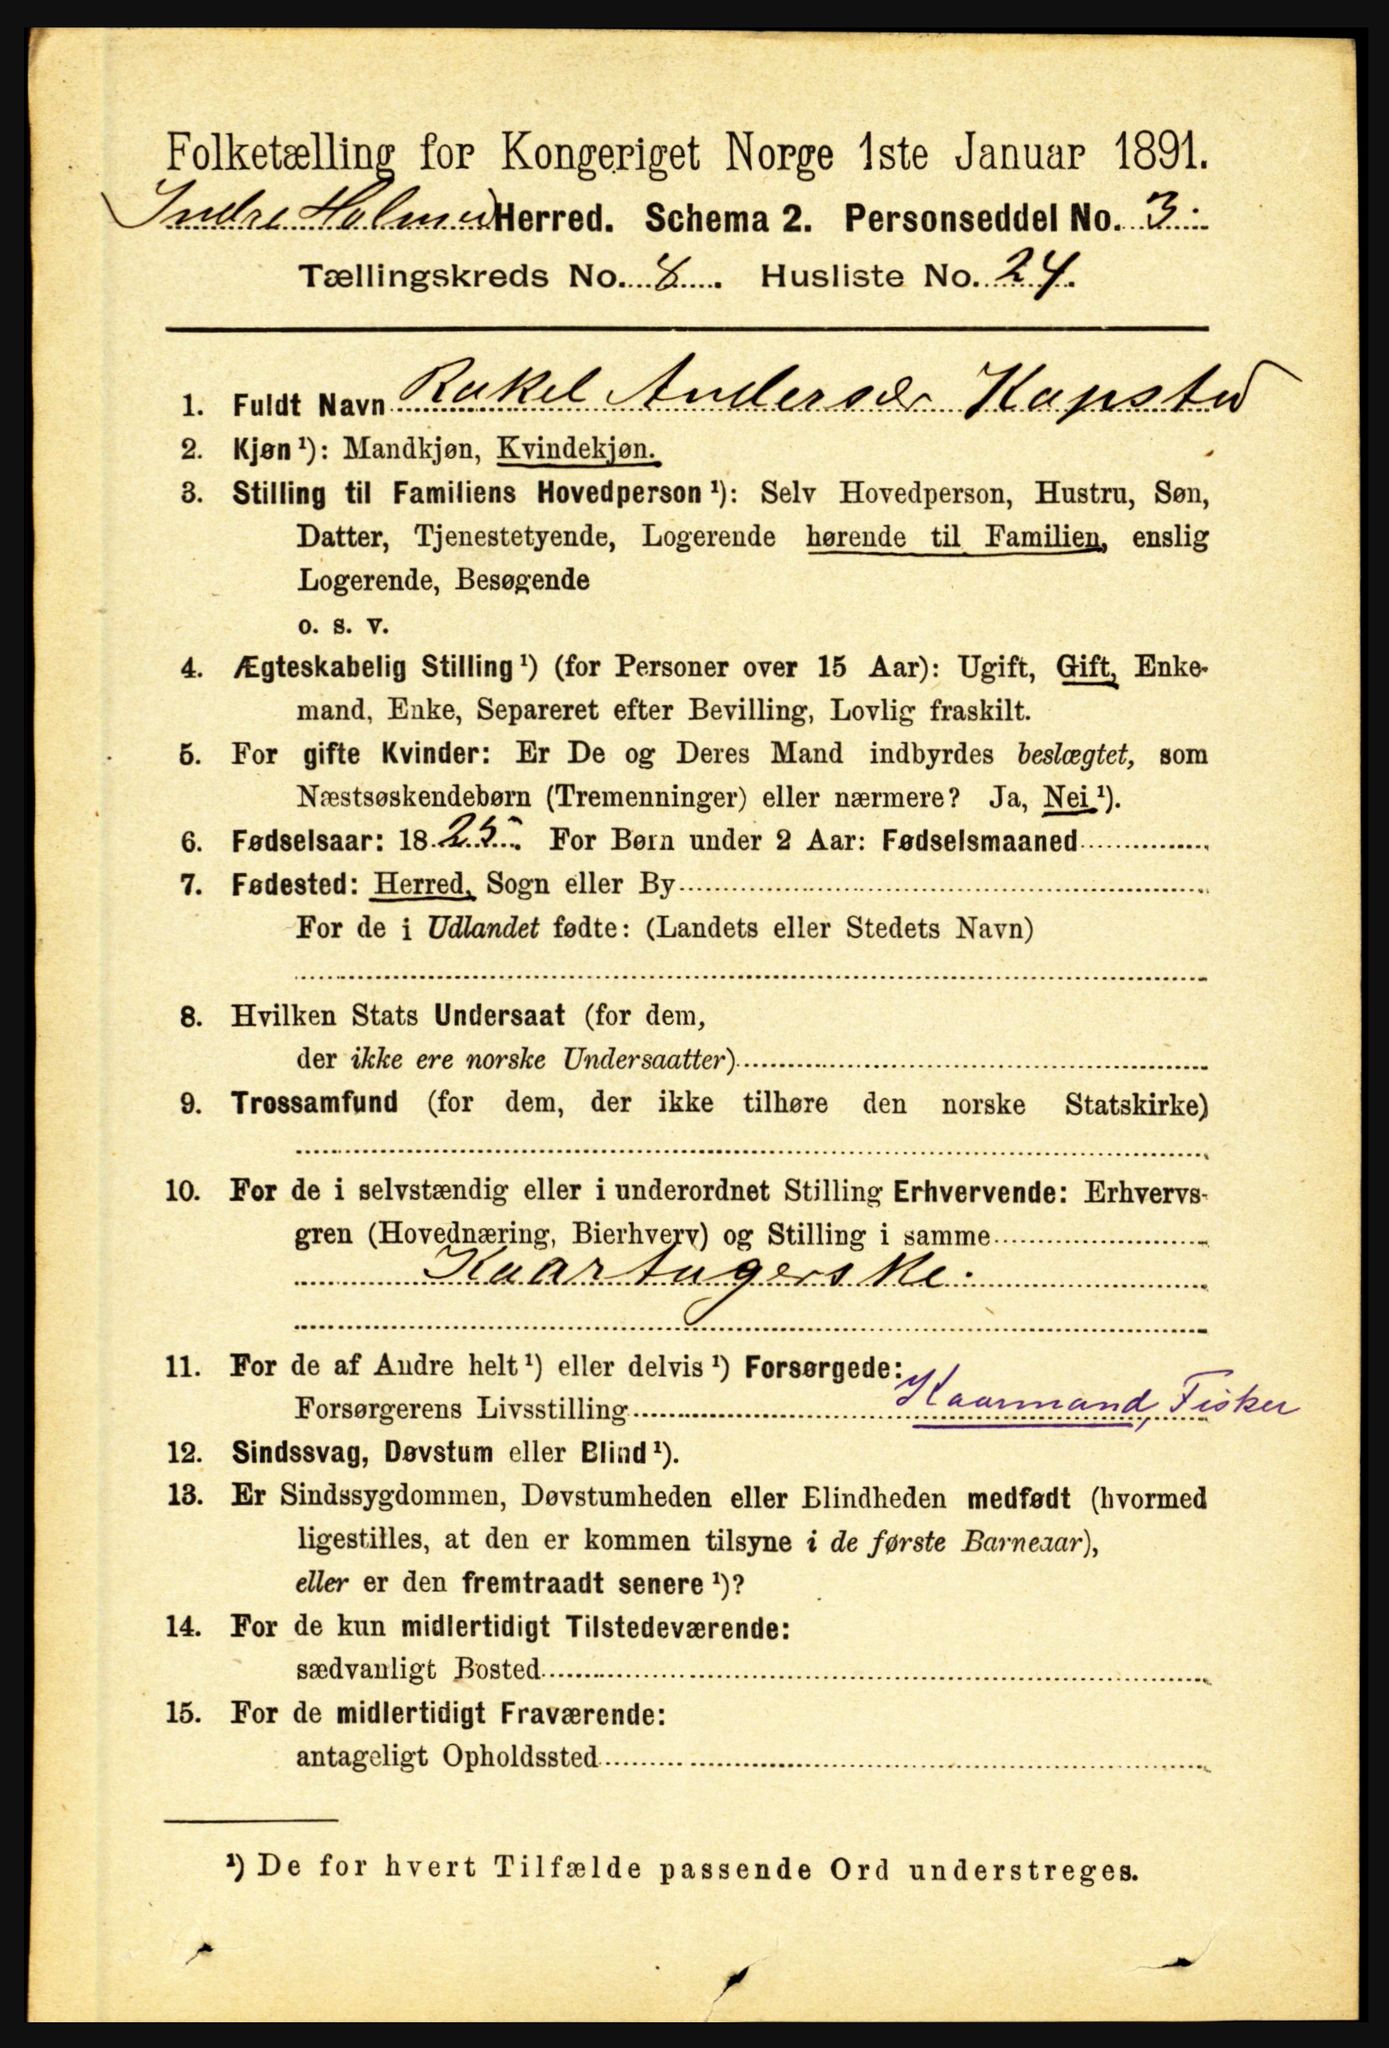 Folketælling for Kongeriget Norge 1ste Januar 1891.
Indre Holmed Herred. Schema 2. Personseddel No. 3
Tællingskreds No. 8. Husliste No. 24.
1. Fuldt Navn Rakel Andersdr Kapstad
2. Kjøn ¹): Mandkjøn, Kvindekjøn.
3. Stilling til Familiens Hovedperson ¹): Selv Hovedperson, Hustru, Søn,
Datter, Tjenestetyende, Logerende hørende til Familien, enslig
Logerende, Besøgende
o. s. v.
4. Ægteskabelig Stilling ¹) (for Personer over 15 Aar): Ugift, Gift, Enke-
mand, Enke, Separeret efter Bevilling, Lovlig fraskilt.
5. For gifte Kvinder: Er De og Deres Mand indbyrdes beslægtet, som
Næstsøskendebørn (Tremenninger) eller nærmere? Ja, Nei ¹).
6. Fødselsaar: 1825. For Børn under 2 Aar: Fødselsmaaned
7. Fødested: Herred, Sogn eller By
For de i Udlandet fødte: (Landets eller Stedets Navn)
8. Hvilken Stats Undersaat (for dem,
der ikke ere norske Undersaatter)
9. Trossamfund (for dem, der ikke tilhøre den norske Statskirke)
10. For de i selvstændig eller i underordnet Stilling Erhvervende: Erhvervs-
gren (Hovednæring, Bierhverv) og Stilling i samme
Kaartagerske.
11. For de af Andre helt ¹) eller delvis ¹) Forsørgede:
Forsørgerens Livsstilling Kaarmand, Fisker
12. Sindssvag, Døvstum eller Blind ¹).
13. Er Sindssygdommen, Døvstumheden eller Blindheden medfødt (hvormed
ligestilles, at den er kommen tilsyne i de første Barneaar),
eller er den fremtraadt senere ¹)?
14. For de kun midlertidigt Tilstedeværende:
sædvanligt Bosted
15. For de midlertidigt Fraværende:
antageligt Opholdssted
¹) De for hvert Tilfælde passende Ord understreges.